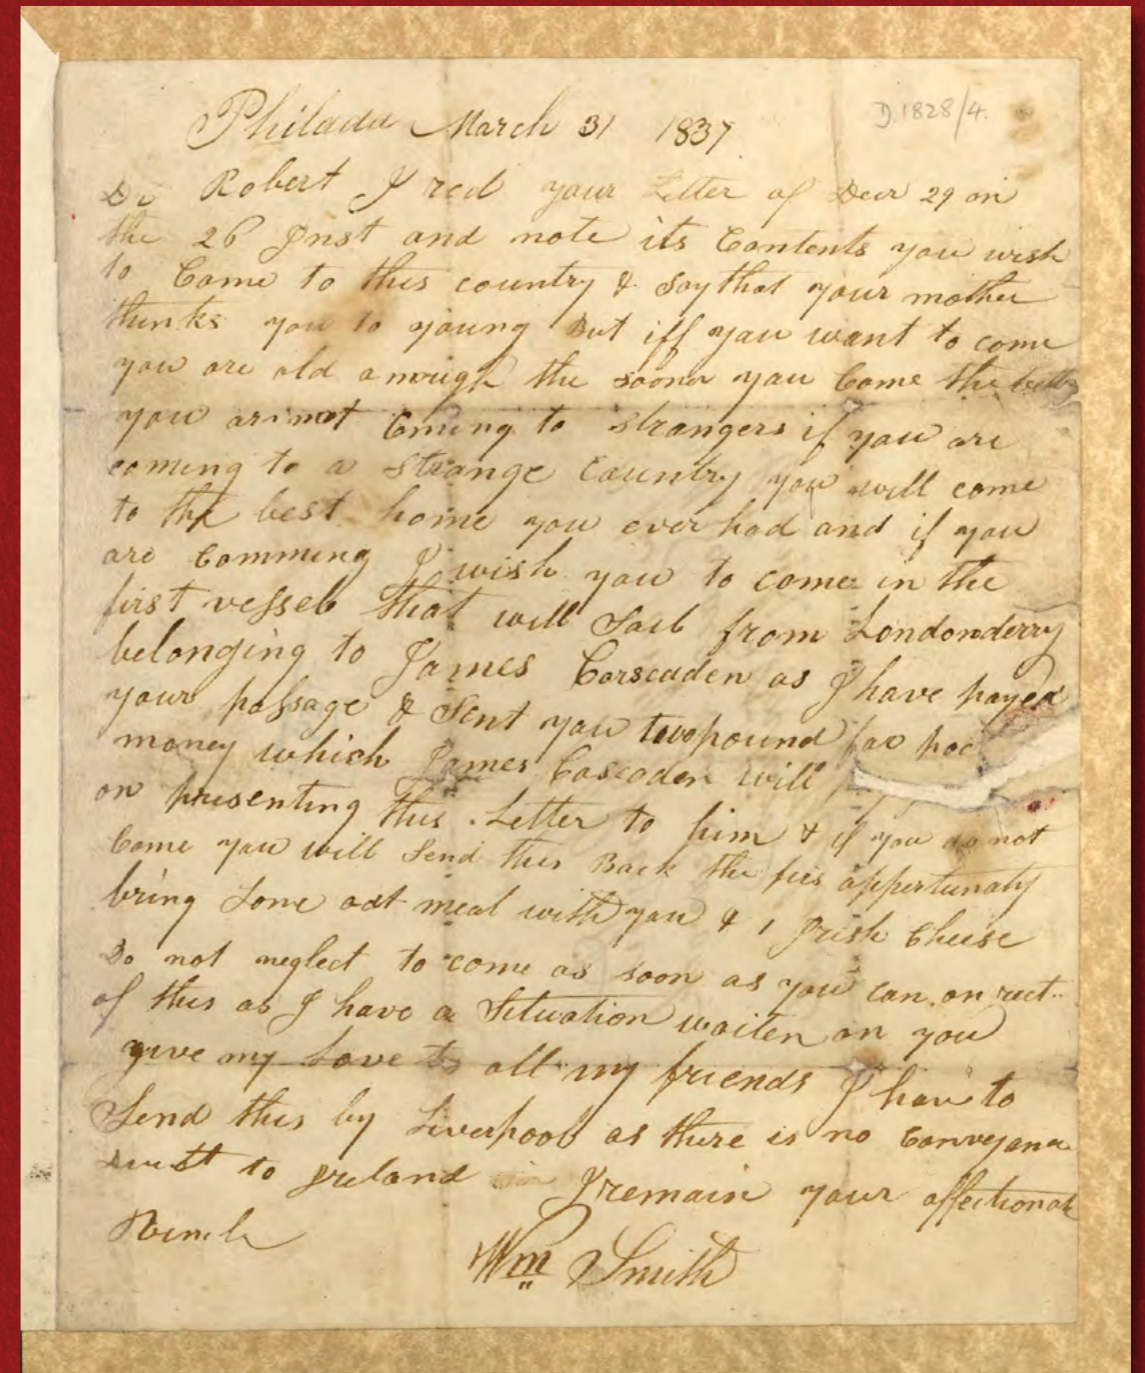 D.1828/4.
Philada March 31 1837
Dr Robert I recd your Letter of Decr 29 on
the 26 Inst and note its Contents you wish
to Come to this country & say that your mother
thinks you to young But iff you want to come
you are old anough the sooner you Come the better
you are not Coming to strangers if you are
coming to a strange Country you will come
to the best home you ever had and if you
are Comming I wish you to come in the
first vessel that will Sail from Londonderry
belonging to James Corscaden as I have payed
your passage & Sent you two pound for
money which James Coscaden will
on presenting this Letter to him & if you do not
Come you will Send this Back the firs oppertunaty
bring Some oat meal with you & 1 Irish Cheise
Do not neglect to come as soon as you can on rect..
of this as I have a Situation waiten on you
give my Love to all my friends I have to
Send this by Liverpool as there is no Conveyance
direct to Ireland I remain your affectionate
Uncle
Wm Smith